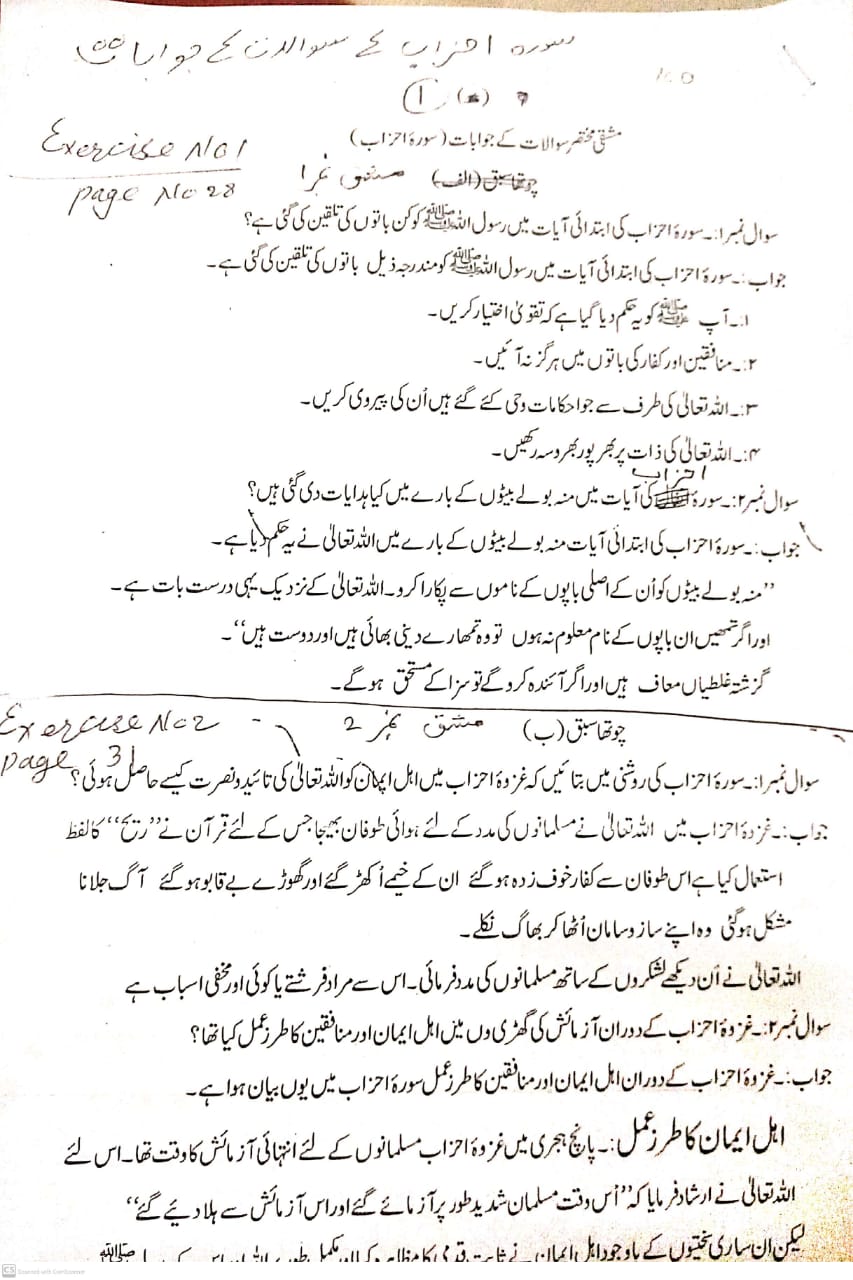 سورہ احزاب کے سوالات کے جوابات
1
مشقی مختصر سوالات کے جوابات (سورۂ احزاب)
Exercise No 1
چوتھا سبق (الف) مشق نمبر 1
page No 28
سوال نمبر۱:۔سورۂ احزاب کی ابتدائی آیات میں رسول اللہ ﷺ کو کن باتوں کی تلقین کی گئی ہے؟
جواب:۔سورۂ احزاب کی ابتدائی آیات میں رسول اللہ ﷺ کو مندرجہ ذیل باتوں کی تلقین کی گئی ہے۔
۱:۔آپ ﷺ کو یہ حکم دیا گیا ہے کہ تقویٰ اختیار کریں۔
۲:۔منافقین اور کفار کی باتوں میں ہرگز نہ آئیں۔
۳:۔اللہ تعالیٰ کی طرف سے جو احکامات وحی کئے گئے ہیں اُن کی پیروی کریں۔
۴:۔اللہ تعالیٰ کی ذات پر بھرپور بھروسہ رکھیں۔
سوال نمبر۲:۔سورۂ احزاب کی آیات میں منہ بولے بیٹوں کے بارے میں کیا ہدایات دی گئی ہیں؟
جواب:۔سورۂ احزاب کی ابتدائی آیات منہ بولے بیٹوں کے بارے میں اللہ تعالیٰ نے یہ حکم دیا ہے۔
”منہ بولے بیٹوں کو اُن کے اصلی باپوں کے ناموں سے پکارا کرو۔اللہ تعالیٰ کے نزدیک یہی درست بات ہے۔
اور اگر تمھیں ان باپوں کے نام معلوم نہ ہوں تو وہ تمھارے دینی بھائی ہیں اور دوست ہیں“۔
گزشتہ غلطیاں معاف ہیں اور اگر آئندہ کرو گے تو سزا کے مستحق ہوگے۔
Exercise No 2
چوتھا سبق (ب) مشق نمبر 2
page 31
سوال نمبر۱:۔سورۂ احزاب کی روشنی میں بتائیں کہ غزوۂ احزاب میں اہل ایمان کو اللہ تعالیٰ کی تائید و نصرت کیسے حاصل ہوئی؟
جواب:۔غزوۂ احزاب میں اللہ تعالیٰ نے مسلمانوں کی مدد کے لئے ہوائی طوفان بھیجا جس کے لئے قرآن نے ”ریح“ کا لفظ
استعمال کیا ہے اس طوفان سے کفار خوف زدہ ہوگئے ان کے خیمے اُکھڑ گئے اور گھوڑے بے قابو ہوگئے آگ جلانا
مشکل ہوگئی وہ اپنے سازوسامان اُٹھا کر بھاگ نکلے۔
اللہ تعالیٰ نے اَن دیکھے لشکروں کے ساتھ مسلمانوں کی مدد فرمائی۔اس سے مراد فرشتے یا کوئی اور مخفی اسباب ہے
سوال نمبر۲:۔غزوۂ احزاب کے دوران آزمائش کی گھڑی وں میں اہل ایمان اور منافقین کا طرز عمل کیا تھا؟
جواب:۔غزوۂ احزاب کے دوران اہل ایمان اور منافقین کا طرز عمل سورۂ احزاب میں یوں بیان ہوا ہے۔
اہل ایمان کا طرز عمل:۔پانچ ہجری میں غزوۂ احزاب مسلمانوں کے لئے انتہائی آزمائش کا وقت تھا۔اس لئے
اللہ تعالیٰ نے ارشاد فرمایا کہ ”اُس وقت مسلمان شدید طور پر آزمائے گئے اور اس آزمائش سے ہلا دیئے گئے“
لیکن ان ساری سختیوں کے باوجود اہل ایمان نے ثابت قدمی کا مظاہرہ کیا اور مکمل طور پر اللہ اور اس کے رسول ﷺ
CS Scanned with CamScanner